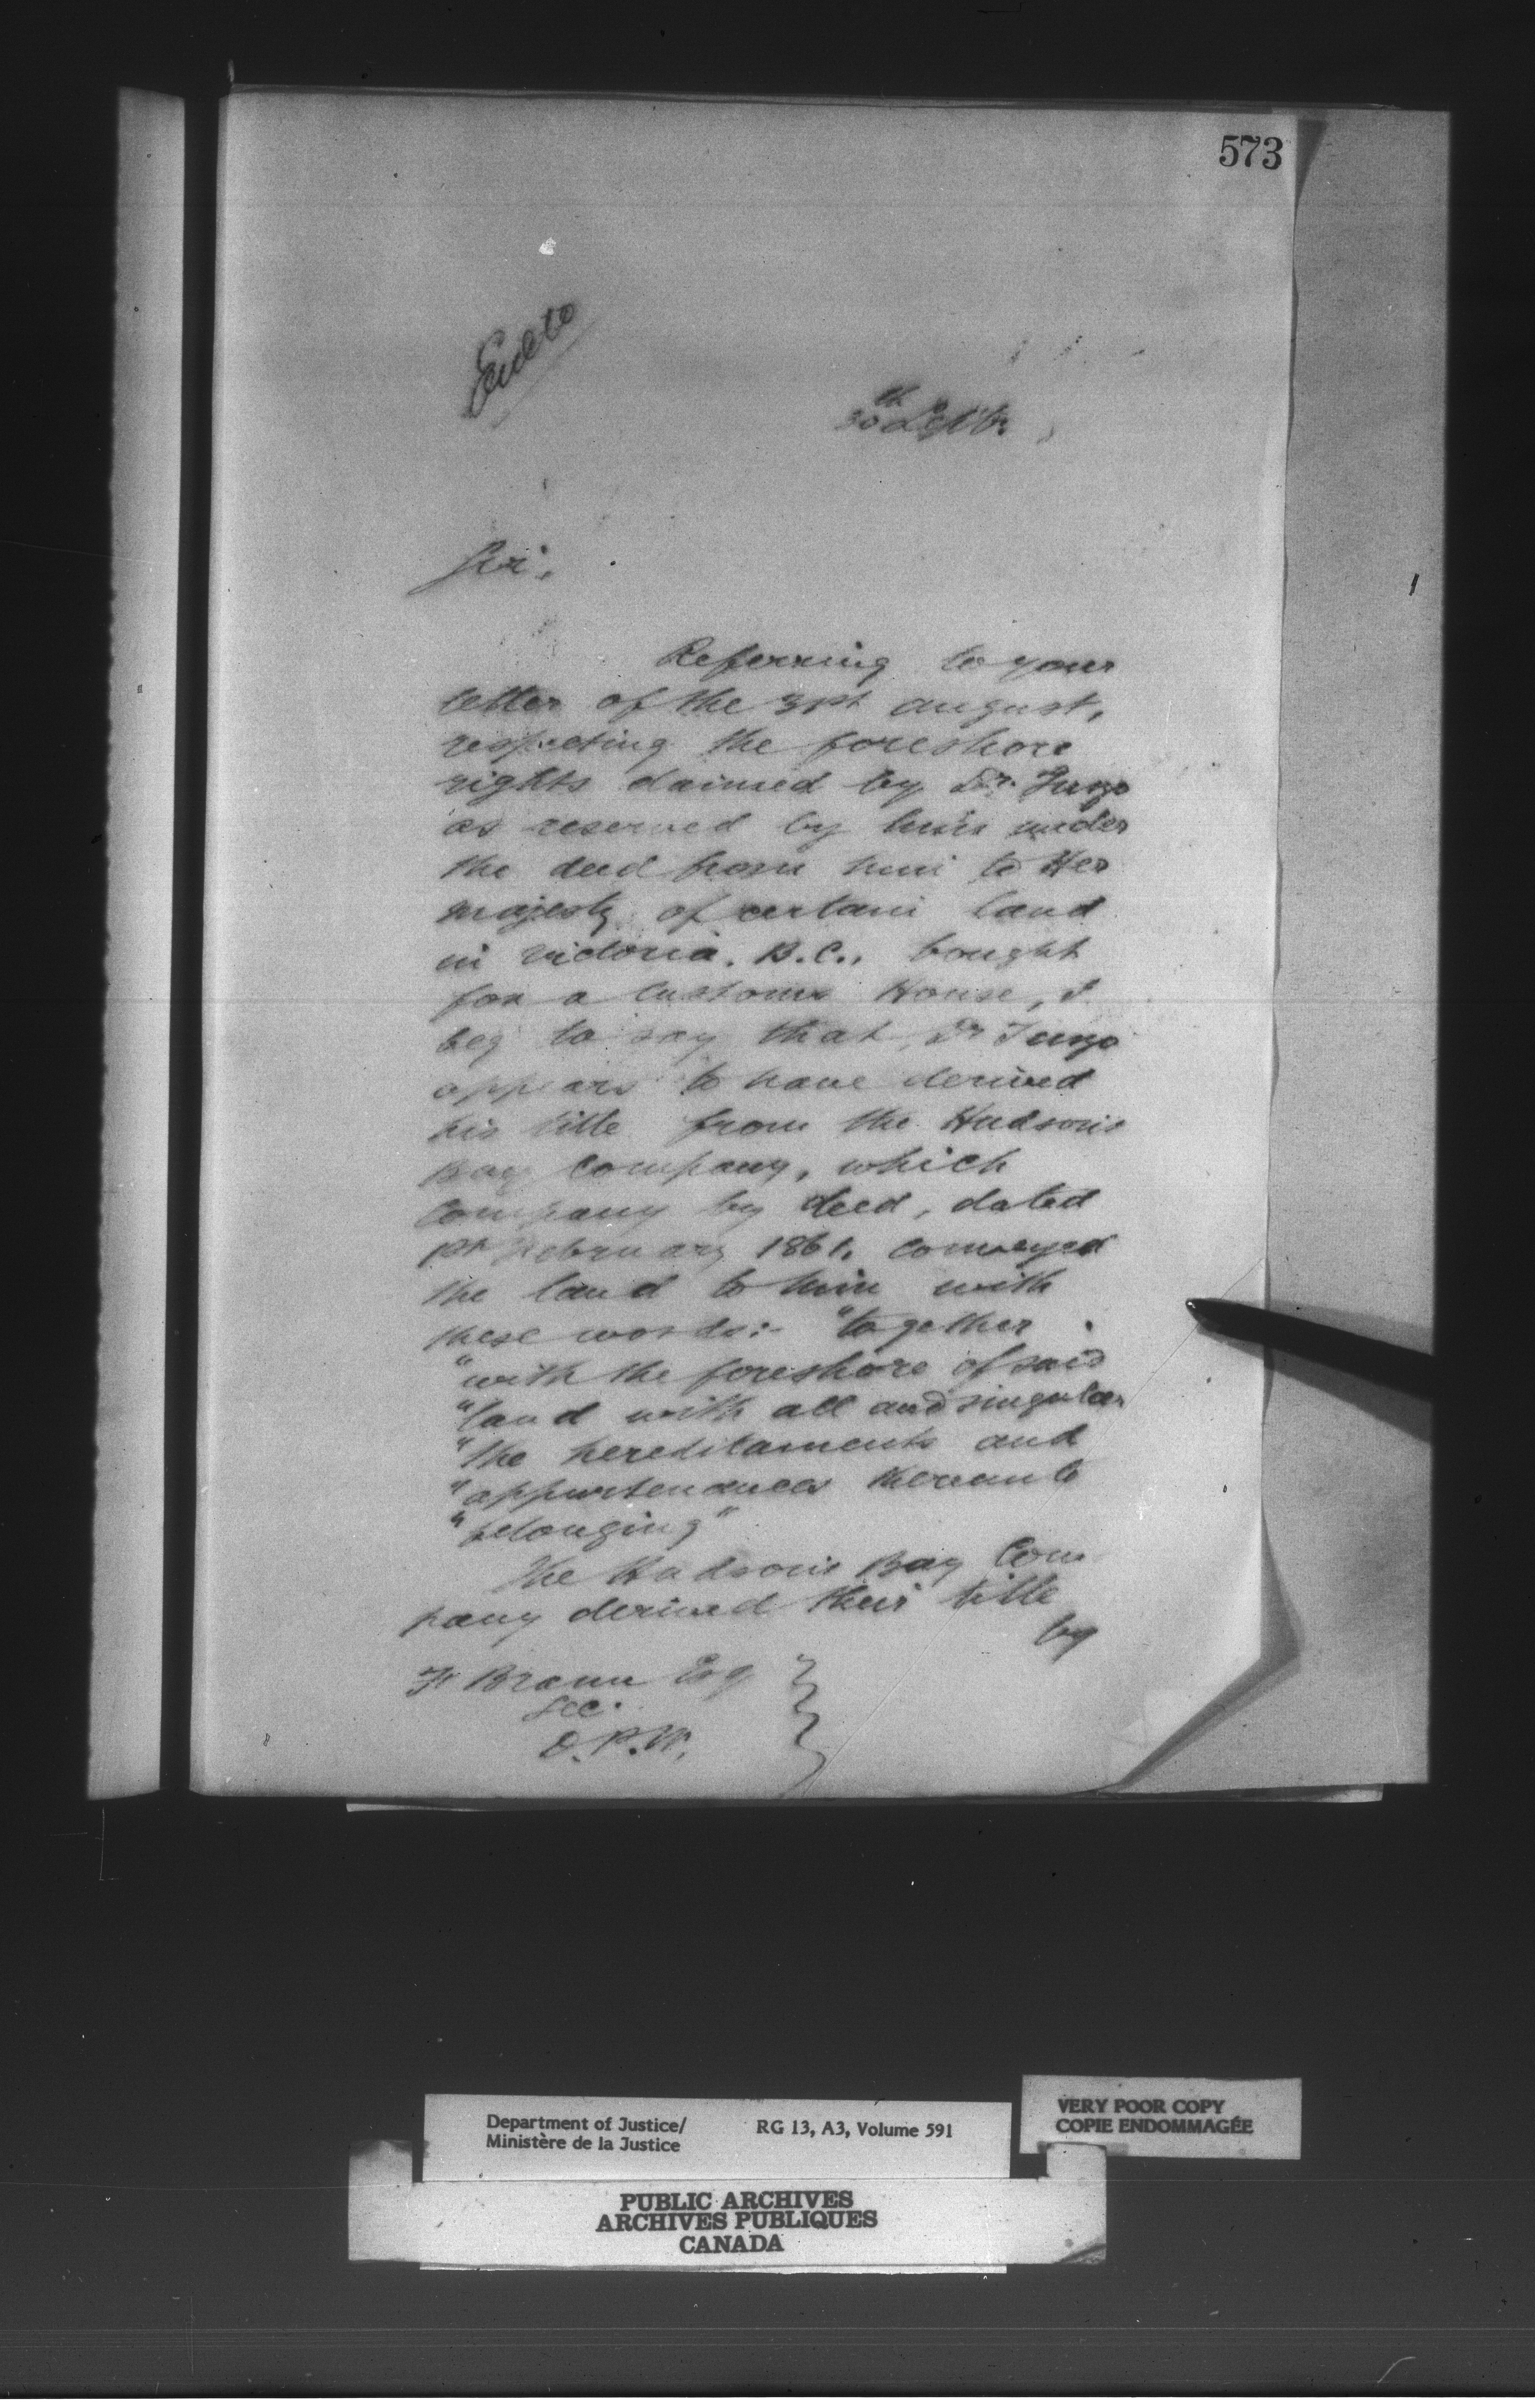 573
30th Septr.
Sir,
Referring to your
letter of the 31st august,
respecting the foreshore
rights claimed by Dr. Tuzo
as reserved by him under
the deed from him to Her
majesty of certain land
in victoria. B.C., bought
for a Customs House, I
beg to say that Dr Tuzo
appears to have derived
his title from the Hudson's
Bay Company, which
Company by deed, dated
1st February 1861. conveyed
the land to him with
these words:- "together
"with the foreshore of said
"land with all and singular
"the hereditaments and
"appurtenances thereunto
"belonging"
The Hudson's Bay Com
pany derived their title
by
F Braun Esq
Sec.
D.P.W.
Department of Justice/ RG 13, A3, Volume 591
Ministère de la Justice
VERY POOR COPY
COPIE ENDOMMAGÉE
PUBLIC ARCHIVES
ARCHIVES PUBLIQUES
CANADA